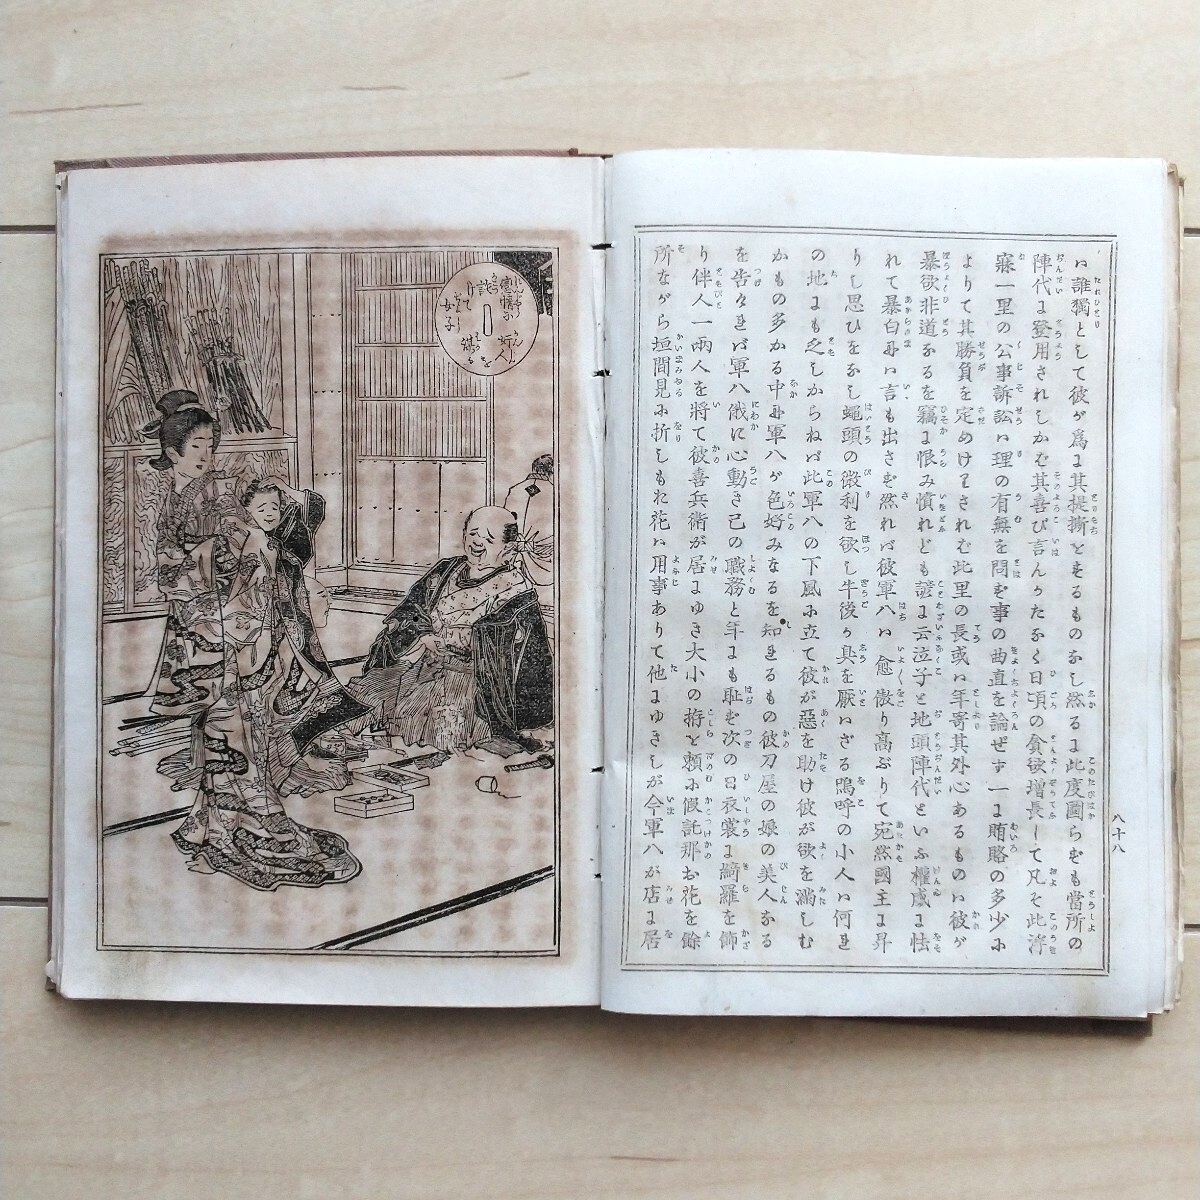 八十八
ハ誰獨として彼が爲に其提撕をするものなし然るに此度圖らずも當所の
陣代に登用されしかば其喜び言んかたなく日頃の貪欲増長して凡そ此濟
寐一里の公事訴訟ハ理の有無を問ず事の曲直を論ぜず一に賄賂の多少に
よりて其勝負を定めけりされば此里の長或ハ年寄其外心あるものハ彼が
暴欲非道なるを竊に恨み憤れども諺に云泣子と地頭陣代といふ權威に怯
れて暴白にハ言も出さず然れば彼軍八ハ愈傲り高ぶりて宛然國主に昇
りし思ひをなし蠅頭の微利を欲し牛後の具を厭ハざる嗚呼の小人ハ何れ
の地にも乏しからねバ此軍八の下風に立て彼が惡を助け彼が欲を滿しむ
かもの多かる中に軍八が色好みなるを知れるもの彼刀屋の娘の美人なる
を告たれバ軍八俄に心動き己の職務と年にも耻ず次の日衣裳に綺羅を飾
り伴人一兩人を將て彼喜兵衛が居にゆき大小の拵を頼に假託那お花を餘
所ながら垣間見に折しもお花ハ用事ありて他にゆきしが今軍八が店に居